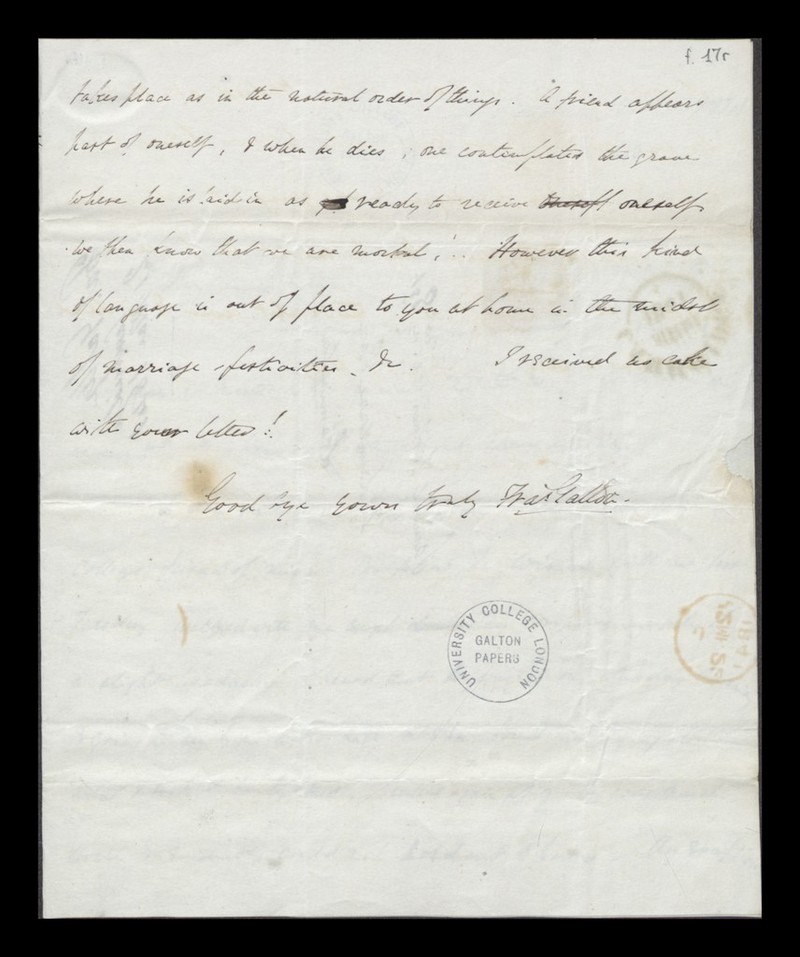 f. 17r
takes place as in the natural order of things. A friend appears
part of oneself, & when he dies, one contemplates the grave
where he is laid in as ready to receive oneself oneself
we then know that we are mortal!.. However this kind
of language is out of place to you at home in the midst
of marriage festivities. &c. I received no cake
with your letter!
Good bye yours truly Fras Galton.
UNIVERSITY COLLEGE LONDON
GALTON
PAPERS
1841